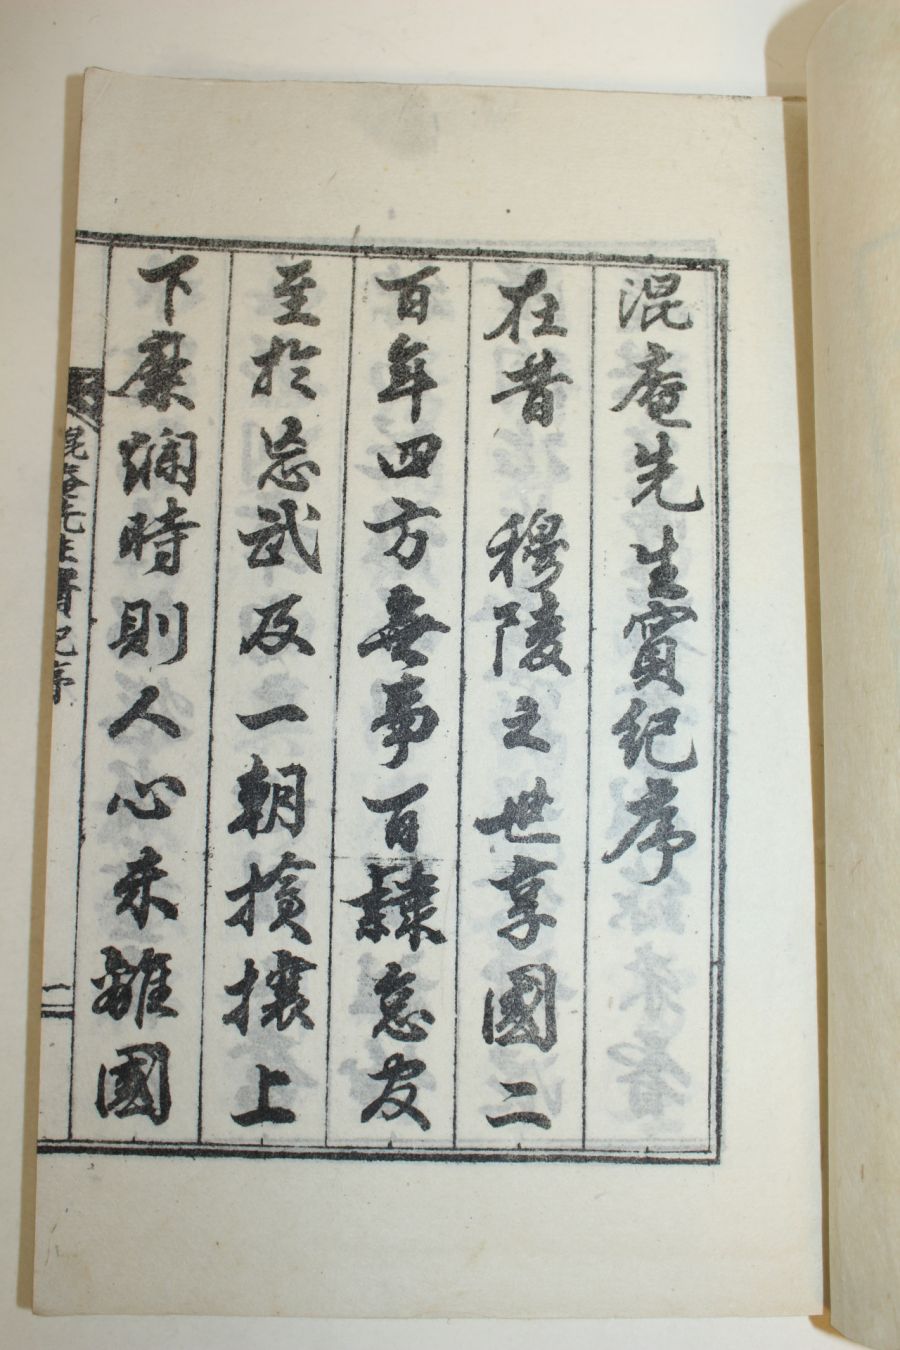 混庵先生實紀序
在昔 穆陵之世享國二
百年四方無事百隷怠安
至於忘武及一朝搶攘上
下糜爛時則人心未離國
混庵先生實紀序
一